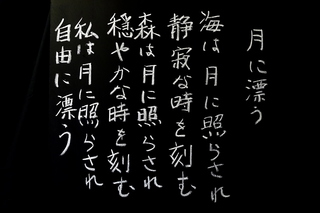 月に漂う
海は月に照らされ
静寂な時を刻む
森は月に照らされ
穏やかな時を刻む
私は月に照らされ
自由に漂う